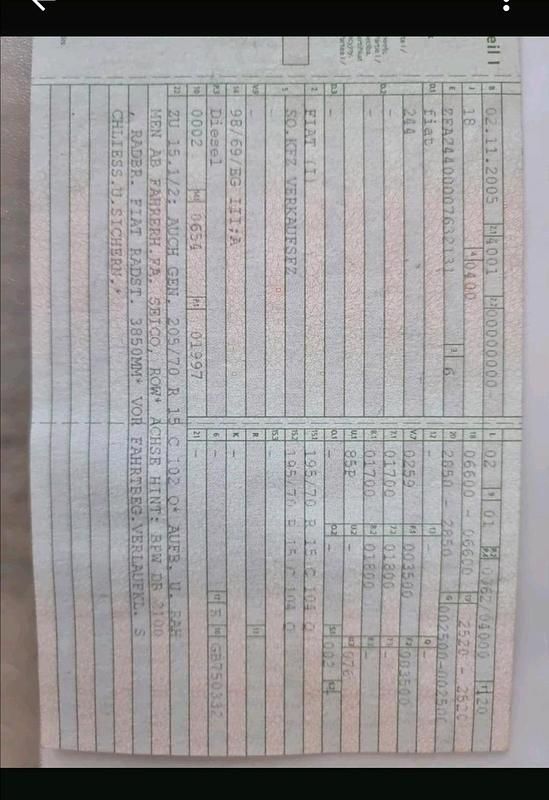 eil I
B 02.11.2005 2.1 4001 2.2 00000000-
J 18 4 0400
E ZFA24400007632131 3 6
D.1 fiat
244
D.2 -
-
D.3 -
2 FIAT (I)
5 SO.KFZ VERKAUFSFZ
-
V.9 -
14 98/69/EG III;A
P.3 Diesel
10 0002 14.1 0654 P.1 01997
L 02 9 01 P.2 P.4 062/04000 T 120
18 06600 - 06600 19 2520 - 2520
20 2850 - 2850 G 002500-002500
12 - 13 - Q -
V.7 0259 F.1 003500 F.2 003500
7.1 01700 7.2 01800 7.3 -
8.1 01700 8.2 01800 8.3 -
U.1 85P U.2 - U.3 076
O.1 - O.2 - S.1 002 S.2 -
15.1 195/70 R 15 C 104 Q
15.2 195/70 R 15 C 104 Q
15.3 -
R - 11 -
K -
6 - 17 E 16 GB750332
21 -
22 ZU 15.1/2: AUCH GEN. 205/70 R 15 C 102 Q* AUFB. U. RAH
MEN AB FAHRERH.FA. SEICO, ROW* ACHSE HINT: BPW DB 2100
, RADBR. FIAT RADST. 3850MM* VOR FAHRTBEG.VERLAUFKL. S
CHLIESS.U.SICHERN.*